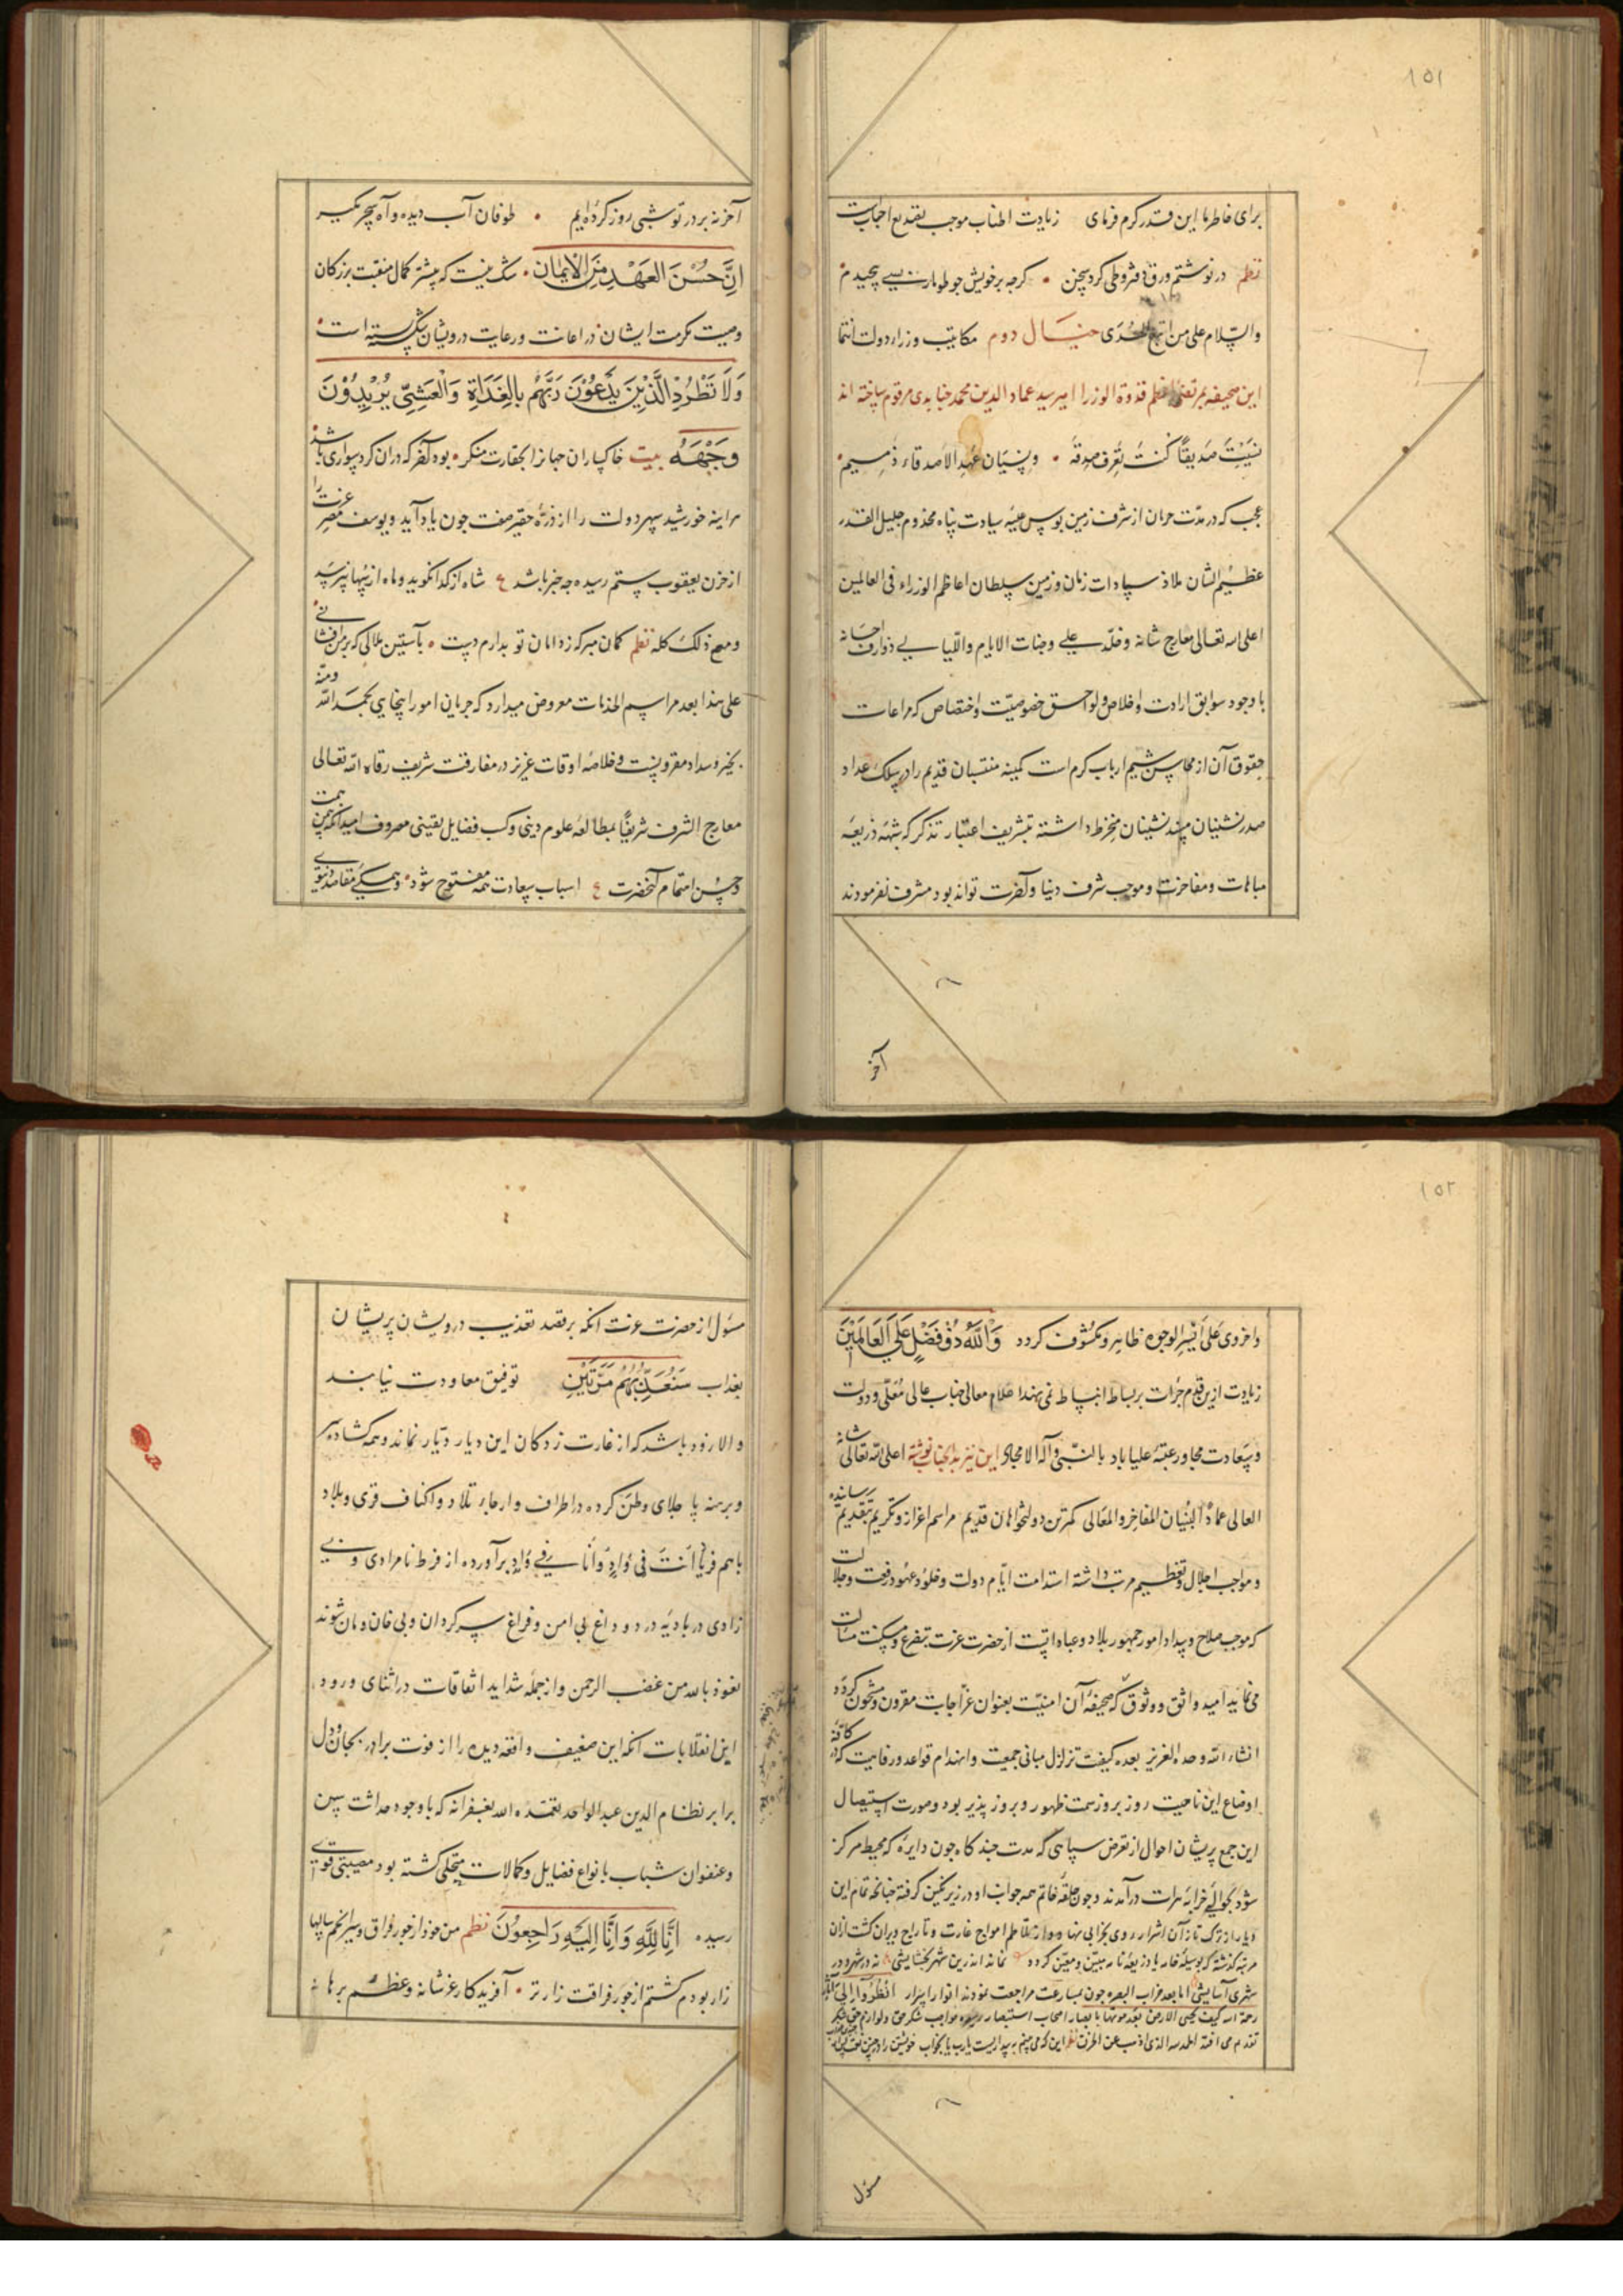 ١٥١
برای خاطر ما این قدر کرم فرمای زیادت اطناب موجب تصدیع احباب است
نظم در نوشتم ورق دفتر و طی کردم سخن • کرچه بر خویش جو طومار بسی پیچیدم
والسلام علی من اتبع الهدی خیال دوم مکاتیب وزراء دولت انتما
این صحیفه بمرتضی اعظم قدوة الوزرا امیر سید عماد الدین محمد جنابدی مرقوم ساخته اند
نسیت صدیقا کنت تعرف صدقه • ونسیان عهد الاصدقاء ذمیم
عجب که در مدت حرمان از شرف زمین بوس عتبه سیادت پناه مخدوم جلیل القدر
عظیم الشان ملاذ سادات زمان و زمین سلطان اعاظم الوزراء فی العالمین
اعلی الله تعالی معارج شانه وخلد علی وجنات الایام واللیالی ذوارف احسانه
با وجود سوابق ارادت و اخلاص و لواحق خصوصیت و اختصاص که مراعات
حقوق آن از محاسن شیم ارباب کرم است کمینه منتسبان قدیم را در سلک عداد
صدر نشینان مسند نشینان منخرط داشته بتشریف اعتبار تذکر که شمه ذریعه
مباهات و مفاخرت و موجب شرف دنیا و آخرت تواند بود مشرف نفرمودند
آخر
آخر نه بر در تو شبی روز کرده ایم • طوفان آب دیده و آه سحر مکیر
ان حسن العهد من الایمان • شک نیست که بیشتر کمال منقبت بزرکان
وصیت مکرمت ایشان در اعانت و رعایت درویشان شکسته است
وَلَا تَطْرُدِ الَّذِينَ يَدْعُونَ رَبَّهُم بِالْغَدَاةِ وَالْعَشِيِّ يُرِيدُونَ
وَجْهَهُ بیت خاکساران جهانرا بحقارت منکر • بود آخر که در ان کرد سواری باشد
هر اینه خورشید سپهر دولت را از ذره حقیر صفت جون یاد آید و یوسف مصر عزت را
از حزن یعقوب ستم رسیده جه خبر باشد ع شاه از کدا نکوید و ماه از سها نپرسد
ومع ذلک کله نظم کمان مبر که ز دامان تو بدارم دست • بآستین ملالی که بر من افشانی
علی هذا بعد مراسم الخدمات معروض میدارد که جریان امور اینجایی بحمد الله ومنه
بخیر و سداد مقرونست و خلاصه اوقات عزیز در مفارقت شریف رقاه الله تعالی
معارج الشرف شریفا بمطالعه علوم دینی و کسب فضایل یقینی مصروف امید آنکه بیمن همت
وحسن اهتمام آنحضرت ع اسباب سعادت همه مفتوح شود • وهمکی مقاصد دنیوی
١٥٢
واخروی علی ایسر الوجوه ظاهر و مکشوف کردد وَاللَّهُ ذُو فَضْلٍ عَلَى الْعَالَمِينَ
زیادت ازین قدم جرات بر بساط انبساط نمی نهد اعلام معالی جناب عالی معلی و دولت
وسعادت مجاور عتبه علیا باد بالنبی وآله الامجاد این نیز بدانجناب نوشته اعلی الله تعالی شانه
العالی عماد البنیان المفاخر والمعالی کمترین دولتخواهان قدیم مراسم اعزاز و تکریم بتقدیم رسانیده
ومواجب اجلال و تعظیم مرتب داشته استدامت ایام دولت و خلود عهود رفعت و جلالت
که موجب صلاح و سداد امور جمهور بلاد و عباد است از حضرت عزت بتضرع و مسکنت مسالت
می نماید امید واثق و وثوق که صحیفه آن امنیت بعنوان عز اجابت مقرون و مشحون کردد
انشاء الله وحده العزیز بعده کیفیت تزلزل مبانی جمعیت و انهدام قواعد رفاهیت که در کافه
اوضاع این ناحیت روز بروز سمت ظهور و بروز پذیر بود و صورت استیصال
این جمع پریشان احوال از تعرض سپاهی که مدت چند کاه جون دایره که محیط مرکز
شود بحوالی خرابه هرات در آمدند وجون حلقه خاتم همه جوانب او در زیر نکین کرفته چنانچه تمام این
دیار از ترک تاز آن اشرار روی بخرابی نهاد و از تلاطم امواج غارت و تاراج ویران کشت از ان
مرتبه کذشته که بوسیله خامه یا ذریعه نامه مبین و معین کردد نماند اندرین شهر بخشایشی نه در شهر و در
شهری آسایشی اما بعد خراب البصره جون بسارعت مراجعت نمودند انوار اسرار انظروا الی آثار
رحمة الله کیف یحیی الارض بعد موتها با بصار اصحاب استبصار رسیده مواجب شکر حق و لوازم حق شکر
تقدیم می افتد الحمد لله الذی اذهب عن الحزن نظم این که می بینم به بیداریست یارب یا بخواب خویشتن را در چنین
مسؤل
مسؤل از حضرت عزت آنکه بر قصد تعذیب درویشان پریشان
بعذاب سَنُعَذِّبُهُم مَّرَّتَيْنِ توفیق معاودت نیابند
والا زود باشد که از غارت زدکان این دیار دیار نماند و همه کشاده سر
وبرهنه پا جلای وطن کرده در اطراف و ارجاء تلاد و اکناف قری و بلاد
باسم فریاد انت فی واد وانا فی واد برآورده از فرط نامرادی و بی
زادی در بادیه درد و داغ بی امن و فراغ سر کردان و بی خان و مان شوند
نعوذ بالله من غضب الرحمن و از جمله شداید اتفاقات در اثنای ورود
این انقلابات آنکه این ضعیف واقعه دیده را از فوت برادر بجان و دل
برابر نظام الدین عبدالواحد تغمده الله بغفرانه که با وجود حداثت سن
وعنفوان شباب بانواع فضایل و کمالات متحلی کشته بود مصیبتی قوی
رسیده إِنَّا لِلَّهِ وَإِنَّا إِلَيْهِ رَاجِعُونَ نظم من خود از جور فراق و سیر انجم سالها
زار بودم کشتم از جور فراقت زارتر • آفریدکار عز شانه وعظم برهانه